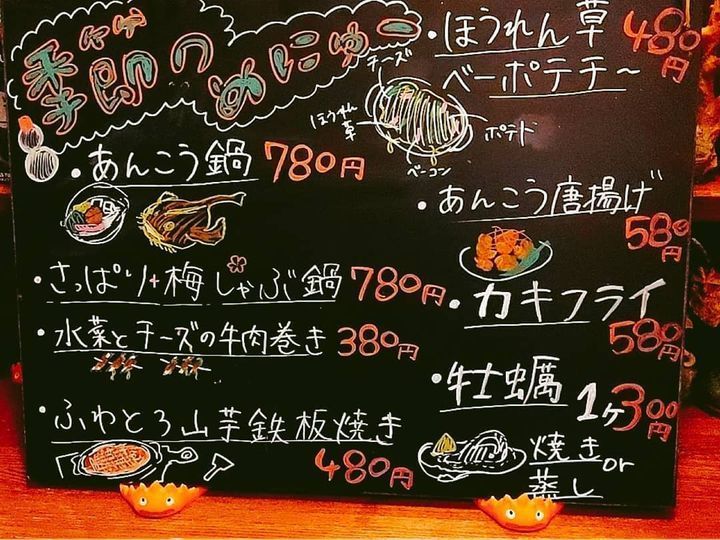 季節のめにゅー
・あんこう鍋 780円
・さっぱり梅しゃぶ鍋 780円
・水菜とチーズの牛肉巻き 380円
・ふわとろ山芋鉄板焼き
480円
・ほうれん草
ベーポテチ〜
480円
チーズ
ほうれん草
ポテト
ベーコン
・あんこう唐揚げ
580円
・カキフライ
580円
・牡蠣 1ヶ300円
焼き or 蒸し